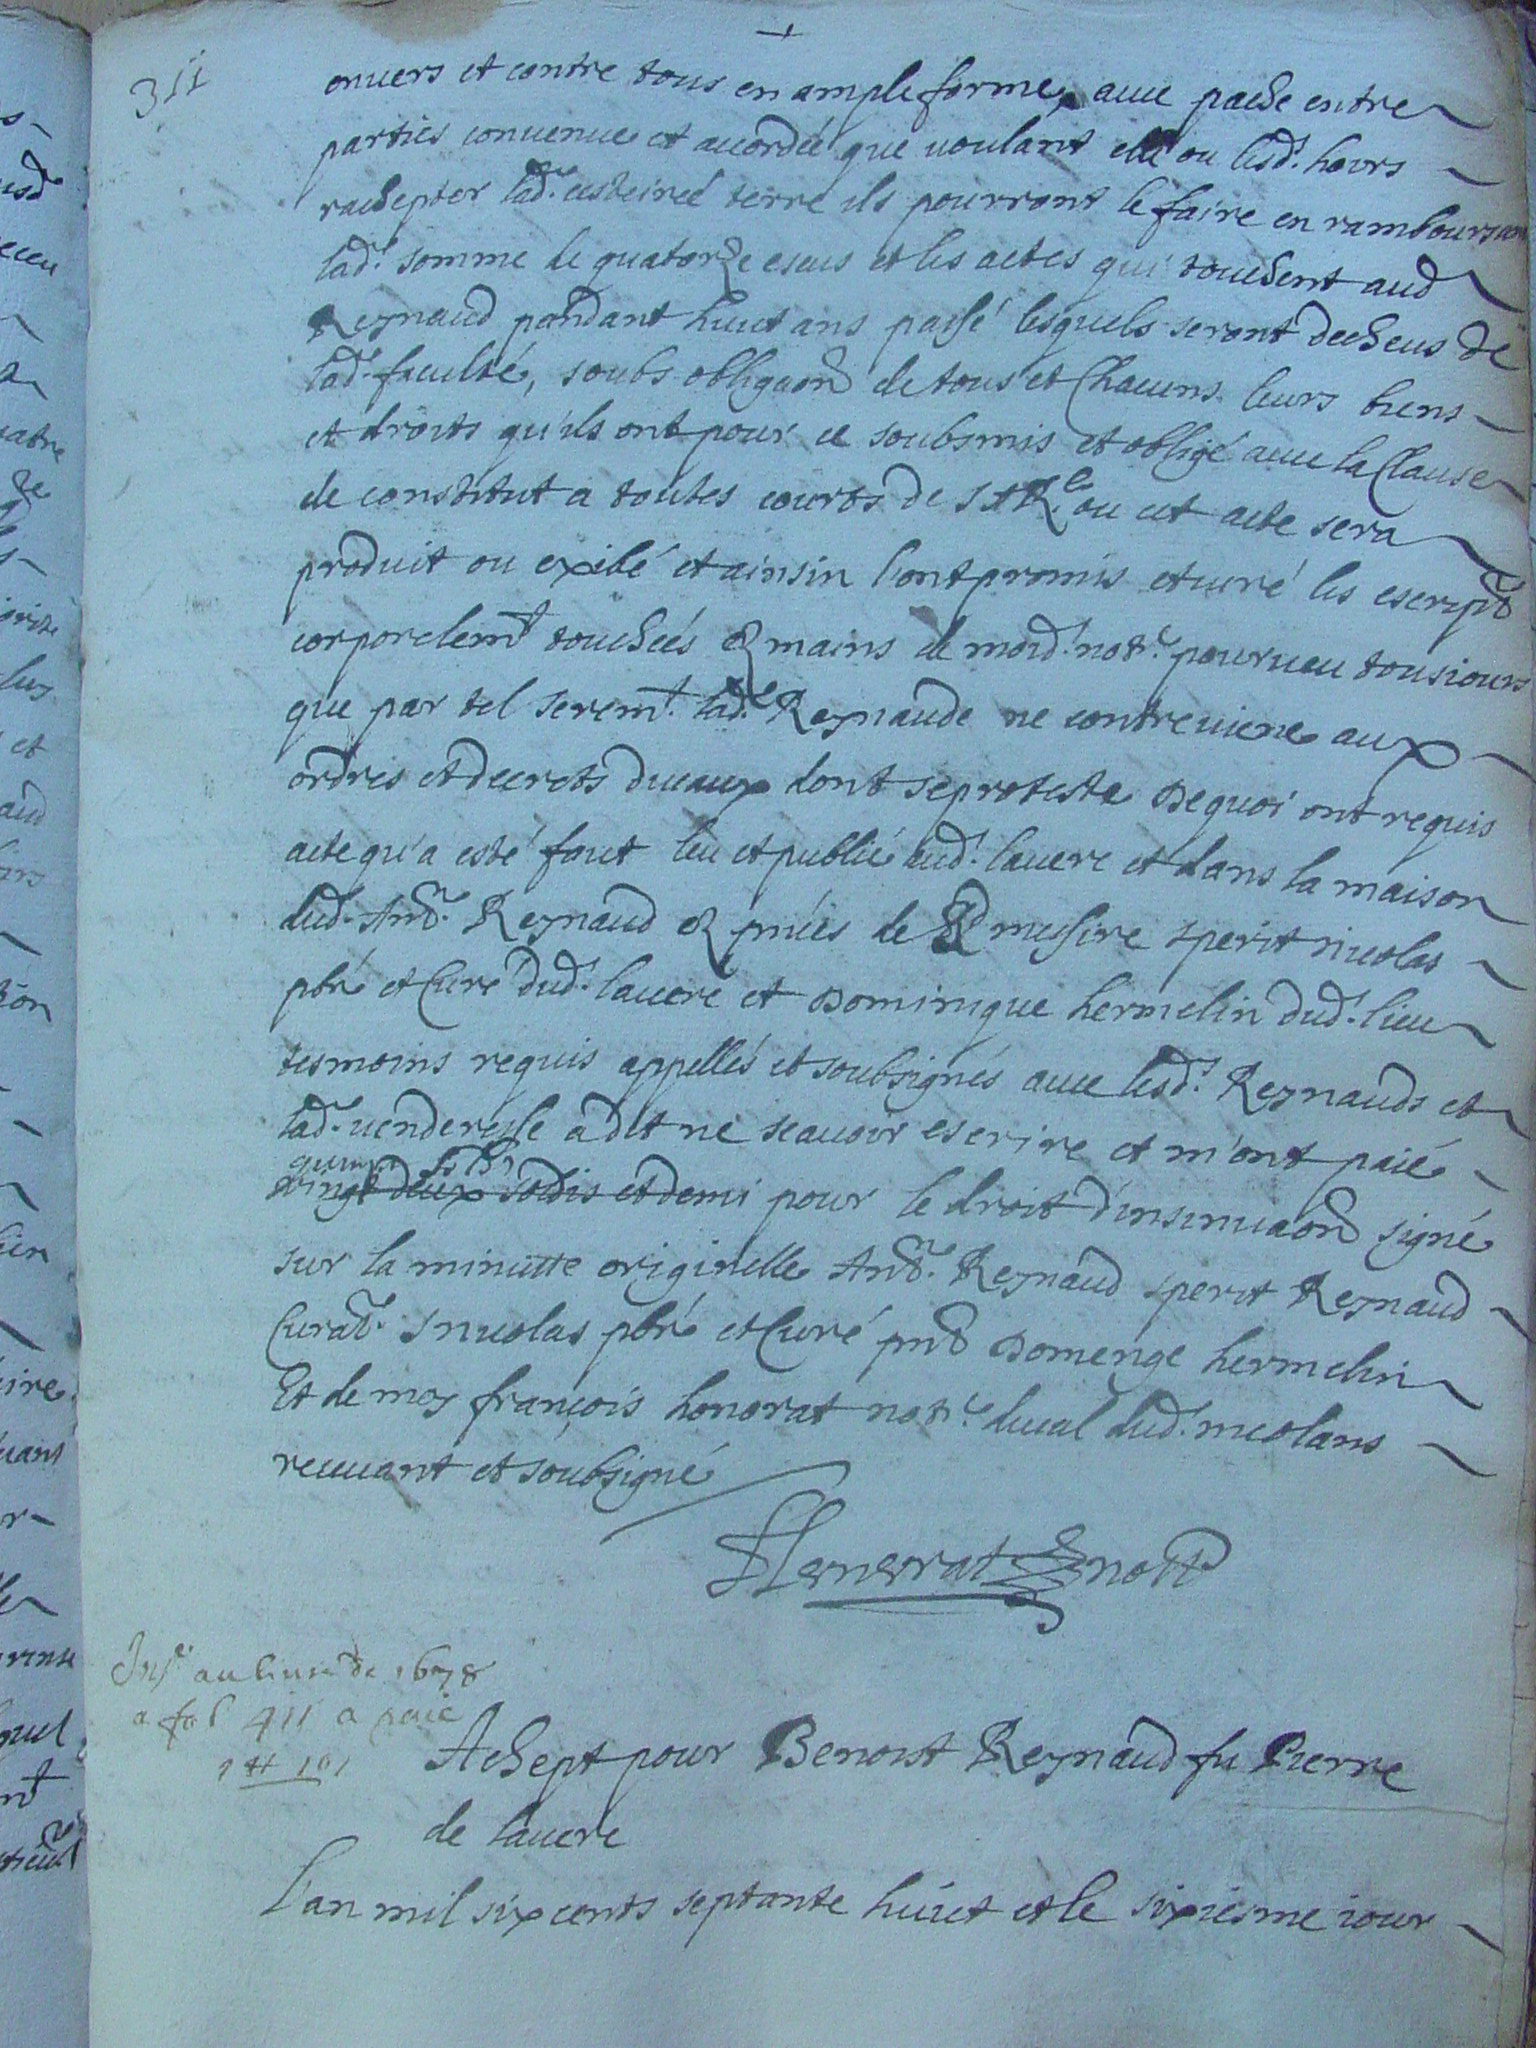 311
onuers et contre tous en ample forme auec pache entre
parties conuenue et accordée que uoulant elle ou lesd. hoirs
rachepter lad. terre ils pourront le faire en rambours
lad. somme de quatorze escus et les actes qui touchent aud
Reynaud pandant huict ans passé lesquels seront decheus de
lad. faculté, soubs obligaon de tous et Chacuns leurs biens
et droits qu'ils ont pour ce soubsmis et obligé auec la Clause
de constitut a toutes courts de S A R.le ou cet acte sera
produit ou exibé et ainsin l'ont promis et iuré les escript.
corporelemt. touchées ez mains de moid. not.e pourueu tousiours
que par tel seremt. lad.e Reynaude ne contreuiene aux
ordres et decrets ducaux dont se proteste de quoi ont requis
acte qu'a esté faict leu et publié aud. lauere et dans la maison
dud. Ant.e Reynaud ez pnces de Rd messire sperit nicolas
pbre et Curé dud. lauere et Dominique hermelin dud. lieu
tesmoins requis appellés et soubsignés auec lesd. Reynauds et
lad. uenderesse a dit ne scauoir escrire et m'ont paié
vingt deux soldis et demi pour le droit d'insinuaon signé
sur la minutte originelle Ant.e Reynaud sperit Reynaud
Curat. S nicolas pbre et Curé pnt Domenge hermelin
Et de moy françois honorat not.e ducal dud. meolans
receuant et soubsigné
Honnorat nott
Ins.é au liure de 1678
a fol 411 a paié
Achept pour Benoist Reynaud fu Pierre
de lauere
L'an mil six cents septante huict et le sixiesme iour